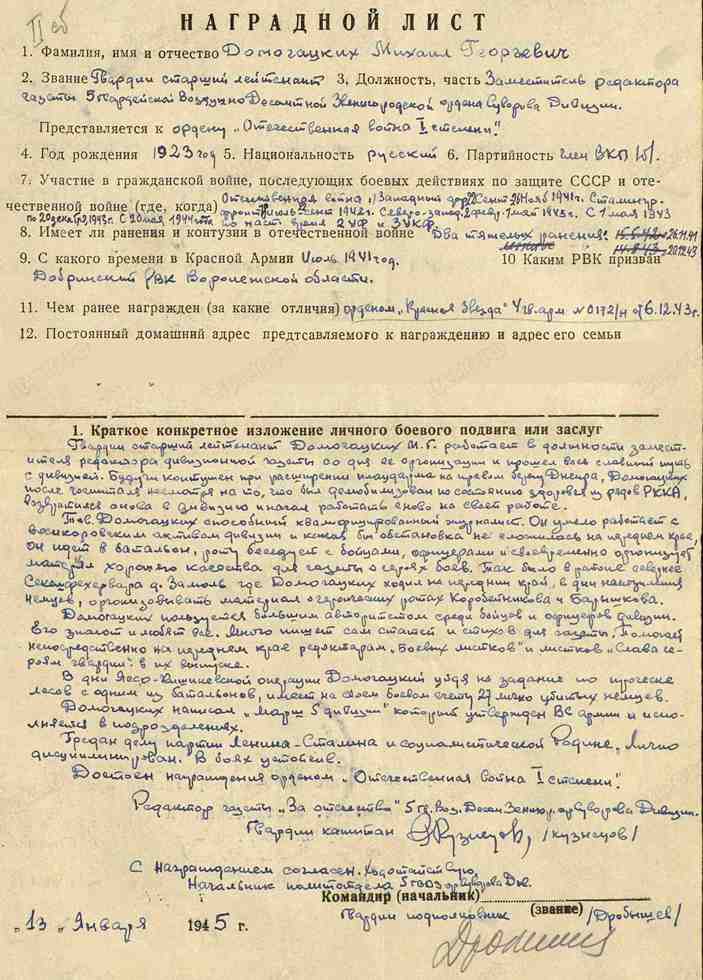 II сб
НАГРАДНОЙ ЛИСТ
1. Фамилия, имя и отчество Домогацких Михаил Георгевич
2. Звание Гвардии старший лейтенант 3, Должность, часть Заместитель редактора
газеты 5 гвардейской Воздушно Десантной Звенигородской ордена Суворова Дивизии.
Представляется к ордену „Отечественная война I степени".
4. Год рождения 1923 год 5. Национальность русский 6. Партийность член ВКП(б).
7. Участие в гражданской войне, последующих боевых действиях по защите СССР и оте-
чественной войне (где, когда) Отечественная война, Западный 1941г. Сталингр.
фронт 1942г. Северо-запад. 1943г. С 1 мая 1943
по 20 декабря 1943г. С 20 мая 1944 года по наст время 2 УФ и 3 УКФ.
8. Имеет ли ранения и контузии в отечественной войне Два тяжелых ранения: 26.11.41
20.12.43
9. С какого времени в Красной Армии Июль 1941 год. 10 Каким РВК призван
Добринский РВК Воронежской области.
11. Чем ранее награжден (за какие отличия) орденом „Красная Звезда" 4 гв.арм №0172/н от 6.12.43г.
12. Постоянный домашний адрес предтсавляемого к награждению и адрес его семьи
1. Краткое конкретное изложение личного боевого подвига или заслуг
Гвардии старший лейтенант Домогацких М.Г. работает в должности замест-
ителя редактора дивизионной газеты со дня ее организации и прошел весь славный путь
с дивизией. Будучи контужен при расширении плацдарма на правом берегу Днепра, Домогацких
после госпиталя несмотря на то, что был демобилизован по состоянию здоровья из рядов РККА,
возвратился снова в дивизию и начал работать снова на своей работе.
Тов. Домогацких способный квалифицированный журналист. Он умело работает с
военкоровским активом дивизии и какая бы обстановка не сложилась на переднем крае,
Он идет в батальон, роту беседует с бойцами, офицерами и своевременно организует
материал хорошего качества для газеты о героях боев. Так было в районе севернее
Секешфехервара д. Замоль где Домогацких ходил на передний край, в дни наступления
немцев, организовывать материал о героических ротах Коробейникова и Барышкова.
Домогацких пользуется большим авторитетом среди бойцов и офицеров дивизии.
Его знают и любят все. Много пишет сам статей и стихов для газеты, помогает
непосредственно на переднем крае редакторам „Боевых листков" и листков „Слава ге-
роям гвардии" в их выпуске.
В дни Ясско-Кишиневской операции Домогацкий уйдя на задание по проческе
лесов с одним из батальонов, имеет на своем боевом счету 27 лично убитых немцев.
Домогацких написал „Марш 5 дивизии" который утвержден ВС армии и испо-
лняется в подразделениях.
Предан делу партии Ленина-Сталина и социалистической Родине. Лично
дисциплинирован. В боях устойчив.
Достоен награждения орденом „Отечественная война I степени".
Редактор газеты „За отечество" 5 гв. Воз. Десан Звениг. ор Суворова Дивизии.
Гвардии капитан Кузнецов, /Кузнецов/
С награждением согласен. Ходотайствую,
Начальник политотдела 5 гвдз ор Суворова Див.
Командир (начальник)
Гвардии подполковник (звание) /Дробышев/
„13„ Января 1945 г.